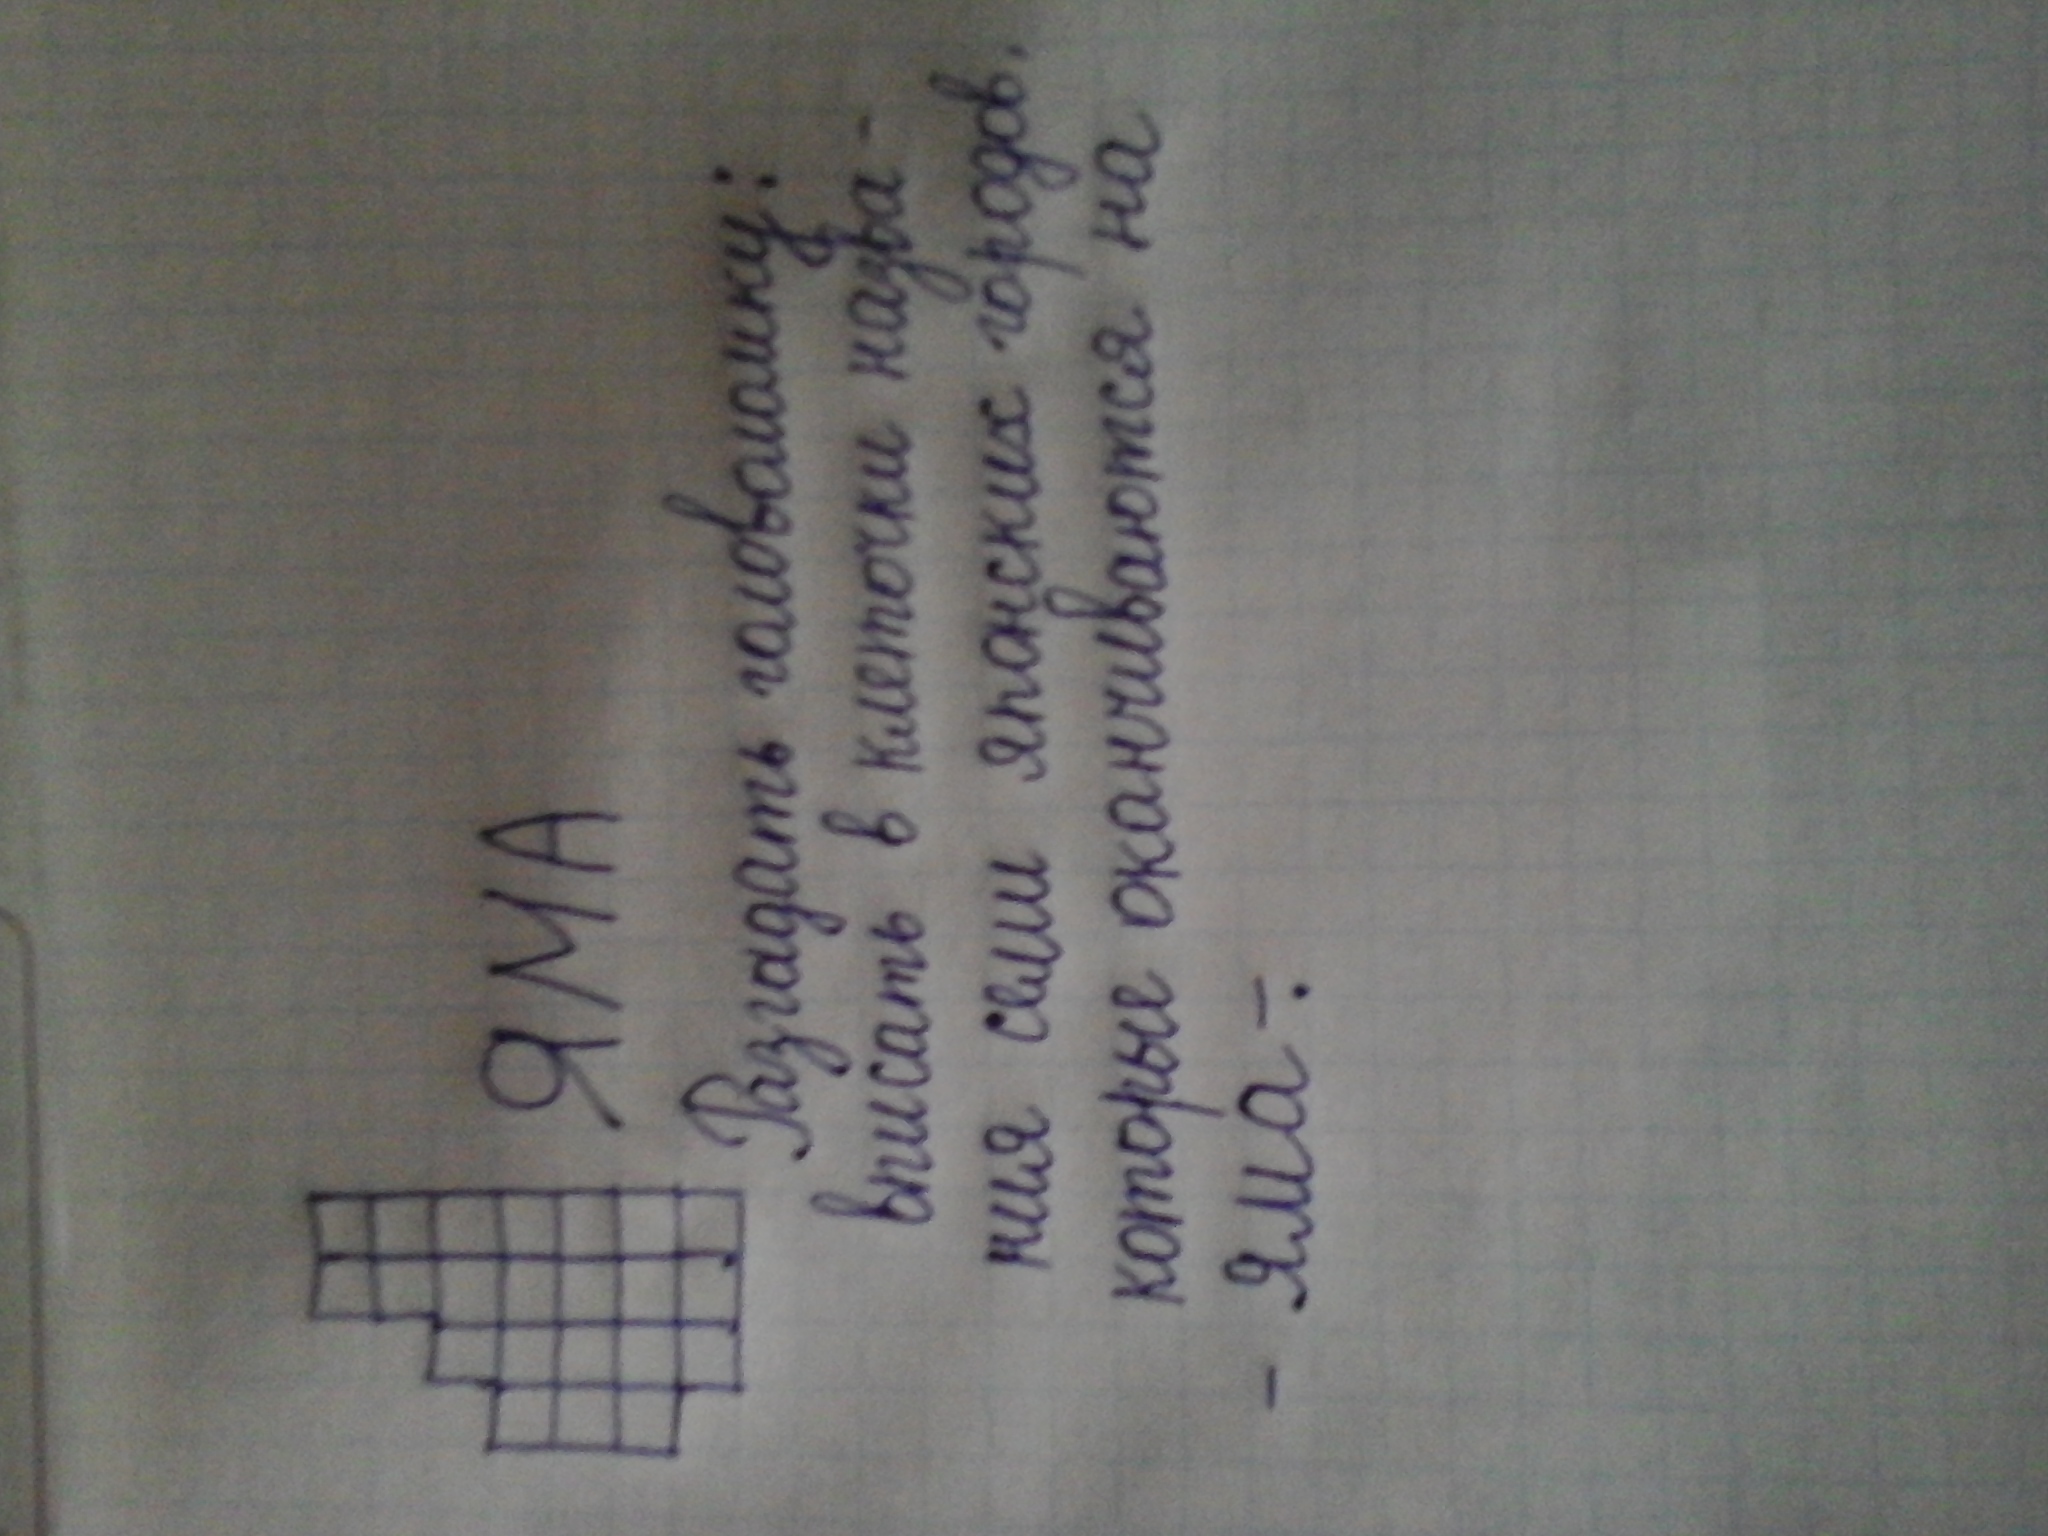 ЯМА
Разгадать головоломку:
вписать в клеточки назва-
ния семи японских городов,
которые оканчиваются на
- яма -.